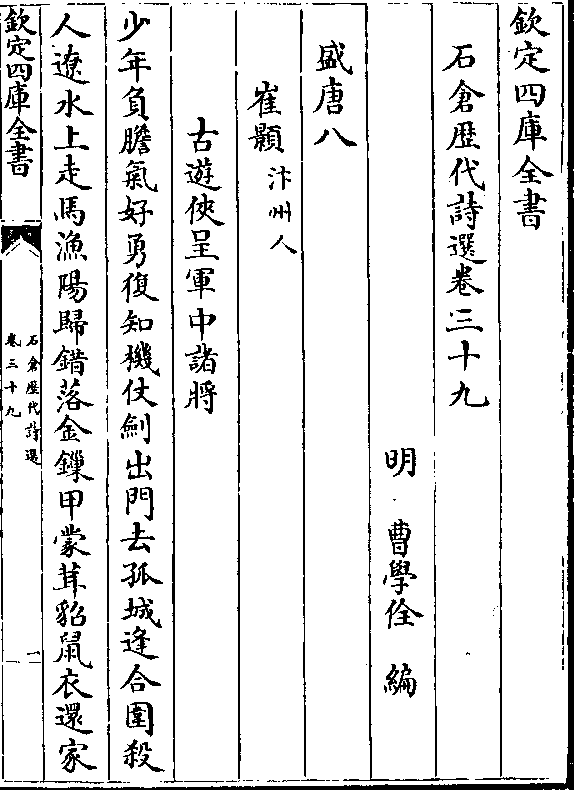 欽定四庫全書
石倉歴代詩選卷三十九
明 曹學佺 編
盛唐八
崔顥 汴州人
古遊俠呈軍中諸將
少年負膽氣好勇復知機仗劍出門去孤城逢合圍殺
人遼水上走馬漁陽歸錯落金鏁甲蒙茸貂鼠衣還家
欽定四庫全書
石倉歴代詩選
卷三十九
一